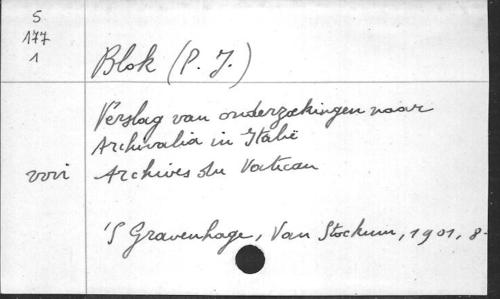 5
177
1
Blok (P. J.)
Verslag van onderzoekingen naar
Archivalia in Italië
voir Archives du Vatican
'S Gravenhage, Van Stockum, 1901, 8-